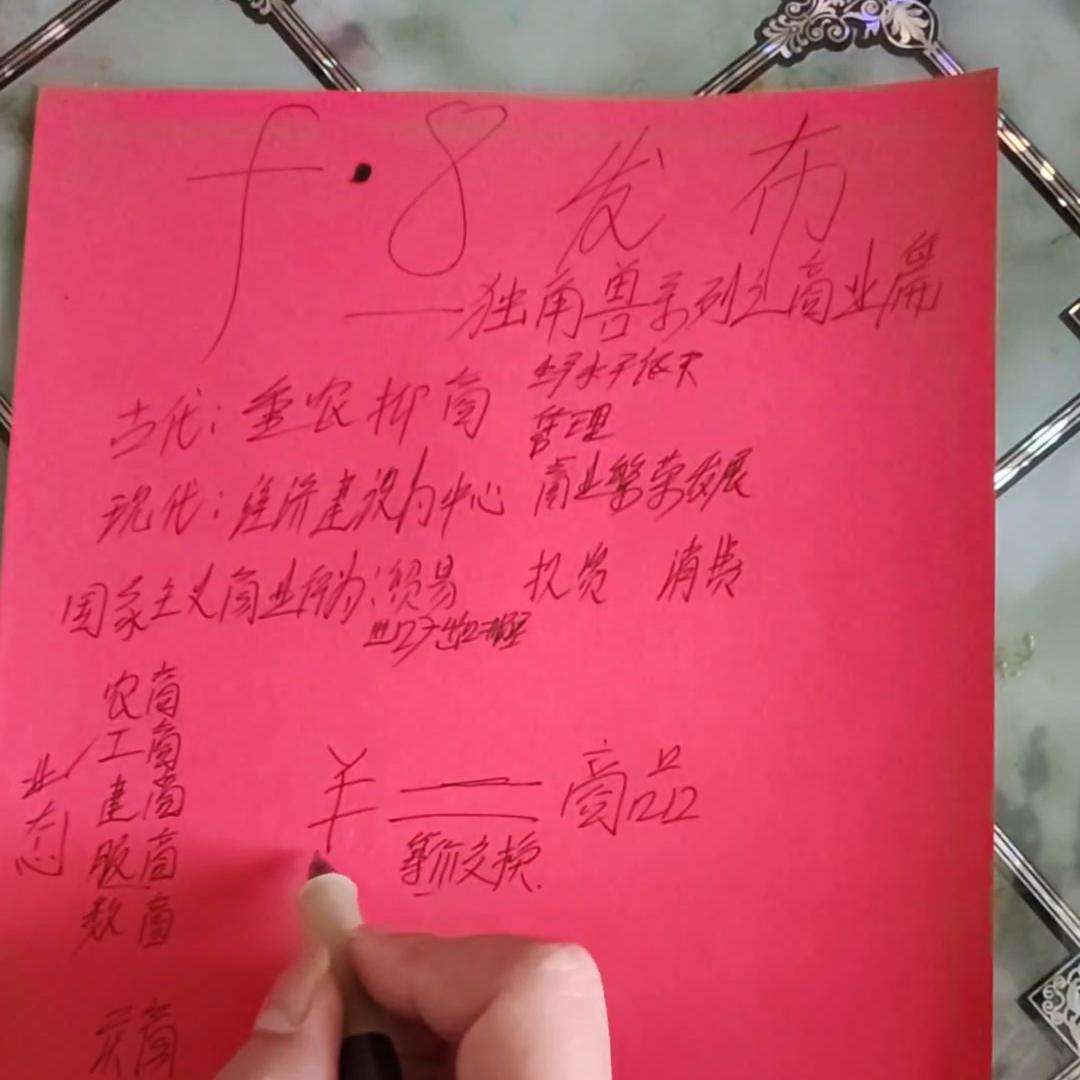 f·8 发布
——独角兽系列之商业篇
古代：重农抑商
管理
现代：经济建设为中心 商业繁荣发展
国家主义商业行为：贸易 投资 消费
农商
工商
建商
服商
数商
业态
¥ = 商品
等价交换.
商